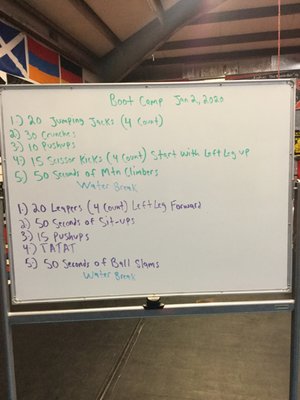 Boot Camp Jan 2, 2020
1.) 20 Jumping Jacks (4 Count)
2) 30 Crunches
3) 10 Pushups
4.) 15 Scissor Kicks (4 Count) Start with Left Leg up
5) 50 Seconds of Mtn Climbers
Water Break
1.) 20 Leapers (4 Count) Left Leg Forward
2) 50 Seconds of Sit-ups
3.) 15 Pushups
4.) TATAT
5.) 50 Seconds of Ball Slams
Water Break